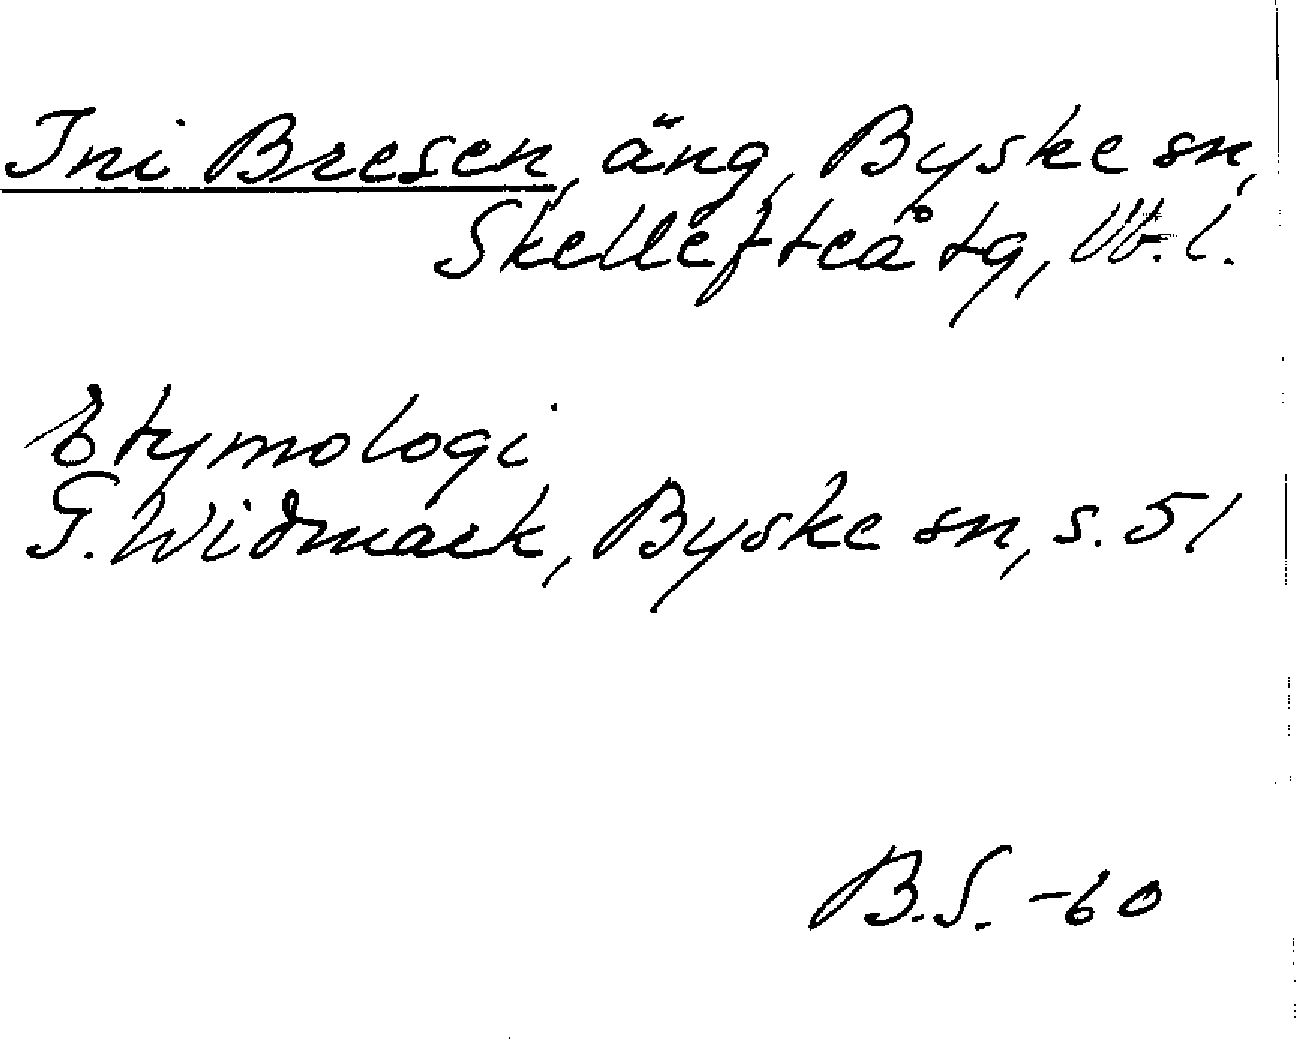 Ini Bresen, äng, Byske sn,
Skellefteå tg, Vb.l.
Etymologi
G. Widmark, Byske sn, s. 51
B.S. -60